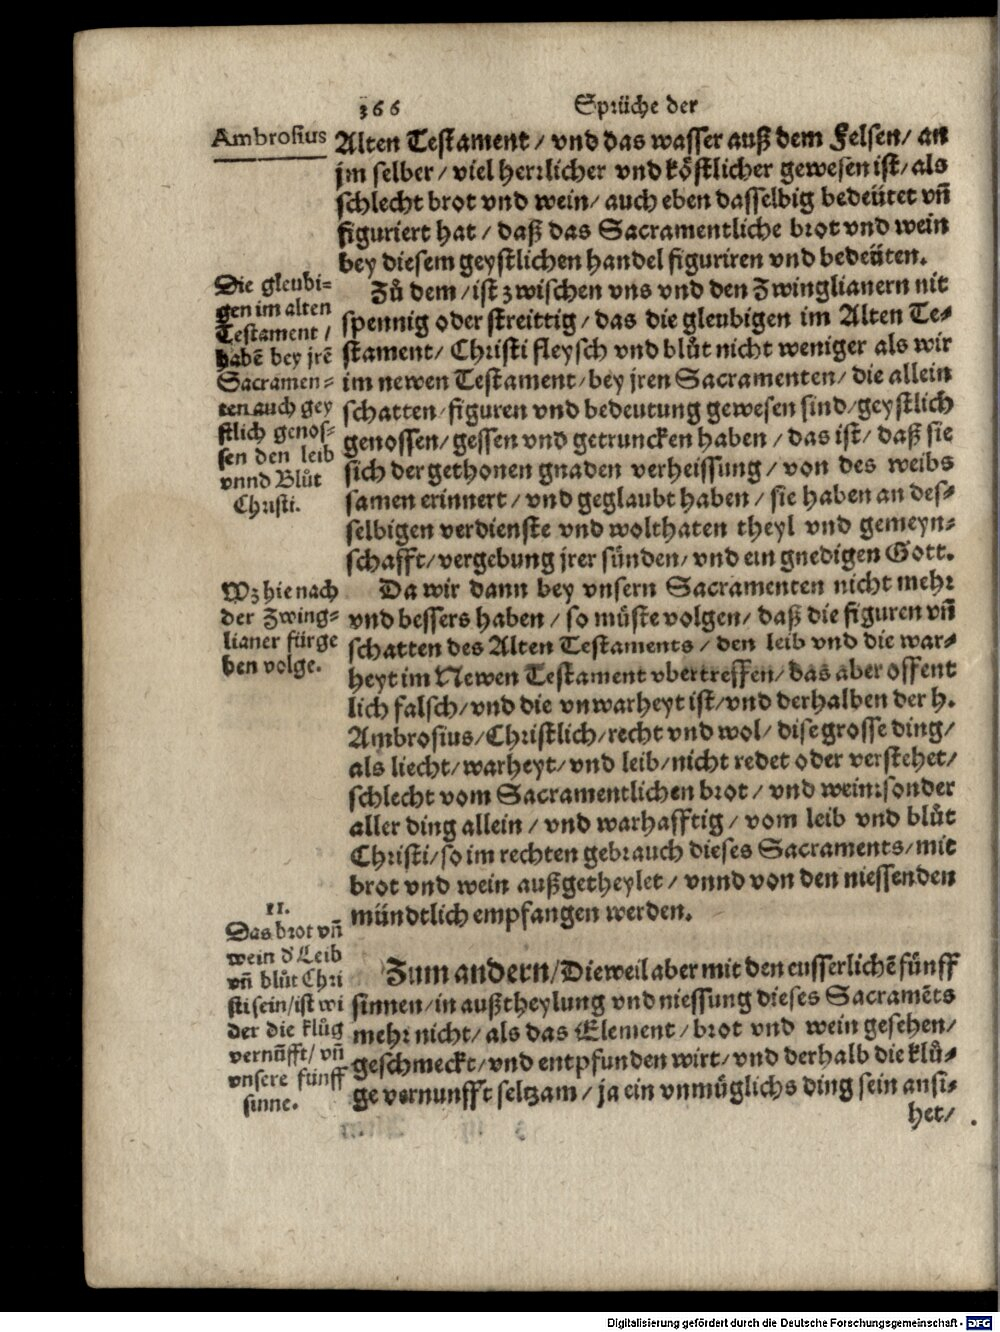 366 Sprüche der
Ambrosius
Alten Testament / vnd das wasser auß dem Felsen / an
jm selber / viel herrlicher vnd köstlicher gewesen ist / als
schlecht brot vnd wein / auch eben dasselbig bedeütet vñ
figuriert hat / daß das Sacramentliche brot vnd wein
bey diesem geystlichen handel figuriren vnd bedeüten.
Die gleubi=
gen im alten
Testament /
habẽ bey jrẽ
Sacramen=
ten auch gey
stlich genos=
sen den leib
vnnd Blůt
Christi.
Zů dem / ist zwischen vns vnd den Zwinglianern nit
spennig oder streittig / das die gleubigen im Alten Te=
stament / Christi fleysch vnd blůt nicht weniger als wir
im newen Testament / bey jren Sacramenten / die allein
schatten / figuren vnd bedeutung gewesen sind / geystlich
genossen / gessen vnd getruncken haben / das ist / daß sie
sich der gethonen gnaden verheissung / von des weibs
samen erinnert / vnd geglaubt haben / sie haben an des=
selbigen verdienste vnd wolthaten theyl vnd gemeyn=
schafft / vergebung jrer sünden / vnd ein gnedigen Gott.
Wz hie nach
der Zwing=
lianer fürge
ben volge.
Da wir dann bey vnsern Sacramenten nicht mehr
vnd bessers haben / so müste volgen / daß die figuren vñ
schatten des Alten Testaments / den leib vnd die war=
heyt im Newen Testament vbertreffen / das aber offent
lich falsch / vnd die vnwarheyt ist / vnd derhalben der h.
Ambrosius / Christlich / recht vnd wol / dise grosse ding /
als liecht / warheyt / vnd leib / nicht redet oder verstehet /
schlecht vom Sacramentlichen brot / vnd wein: sonder
aller ding allein / vnd warhafftig / vom leib vnd blůt
Christi / so im rechten gebrauch dieses Sacraments / mit
brot vnd wein außgetheylet / vnnd von den niessenden
mündtlich empfangen werden.
11.
Das brot vñ
wein d' Leib
vñ blůt Chri
sti sein / ist wi
der die klůg
vernũfft / vñ
vnsere fünff
sinne.
Zum andern / Dieweil aber mit den eusserlichẽ fünff
sinnen / in außtheylung vnd niessung dieses Sacramẽts
mehr nicht / als das Element / brot vnd wein gesehen /
geschmeckt / vnd entpfunden wirt / vnd derhalb die klů=
ge vernunfft seltzam / ja ein vnmüglichs ding sein ansi=
het /
Digitalisierung gefördert durch die Deutsche Forschungsgemeinschaft - DFG